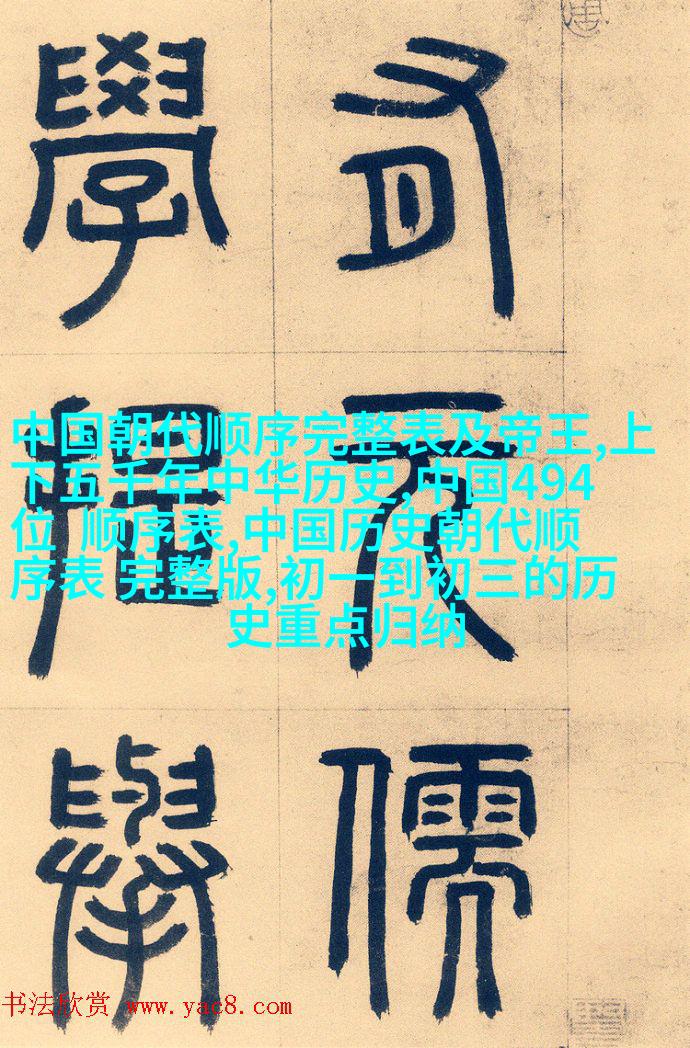 有元儒
學提舉
中国朝代顺序完整表及帝王,上
下五千年中华历史,中国494
位 顺序表,中国历史朝代顺
序表 完整版,初一到初三的历
史重点归纳
书法欣赏 www.yac8.com